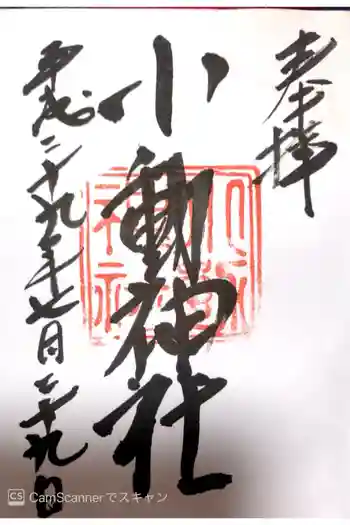 奉拝
小動神社
平成二十九年七月二十九日
小動神社
CS CamScannerでスキャン